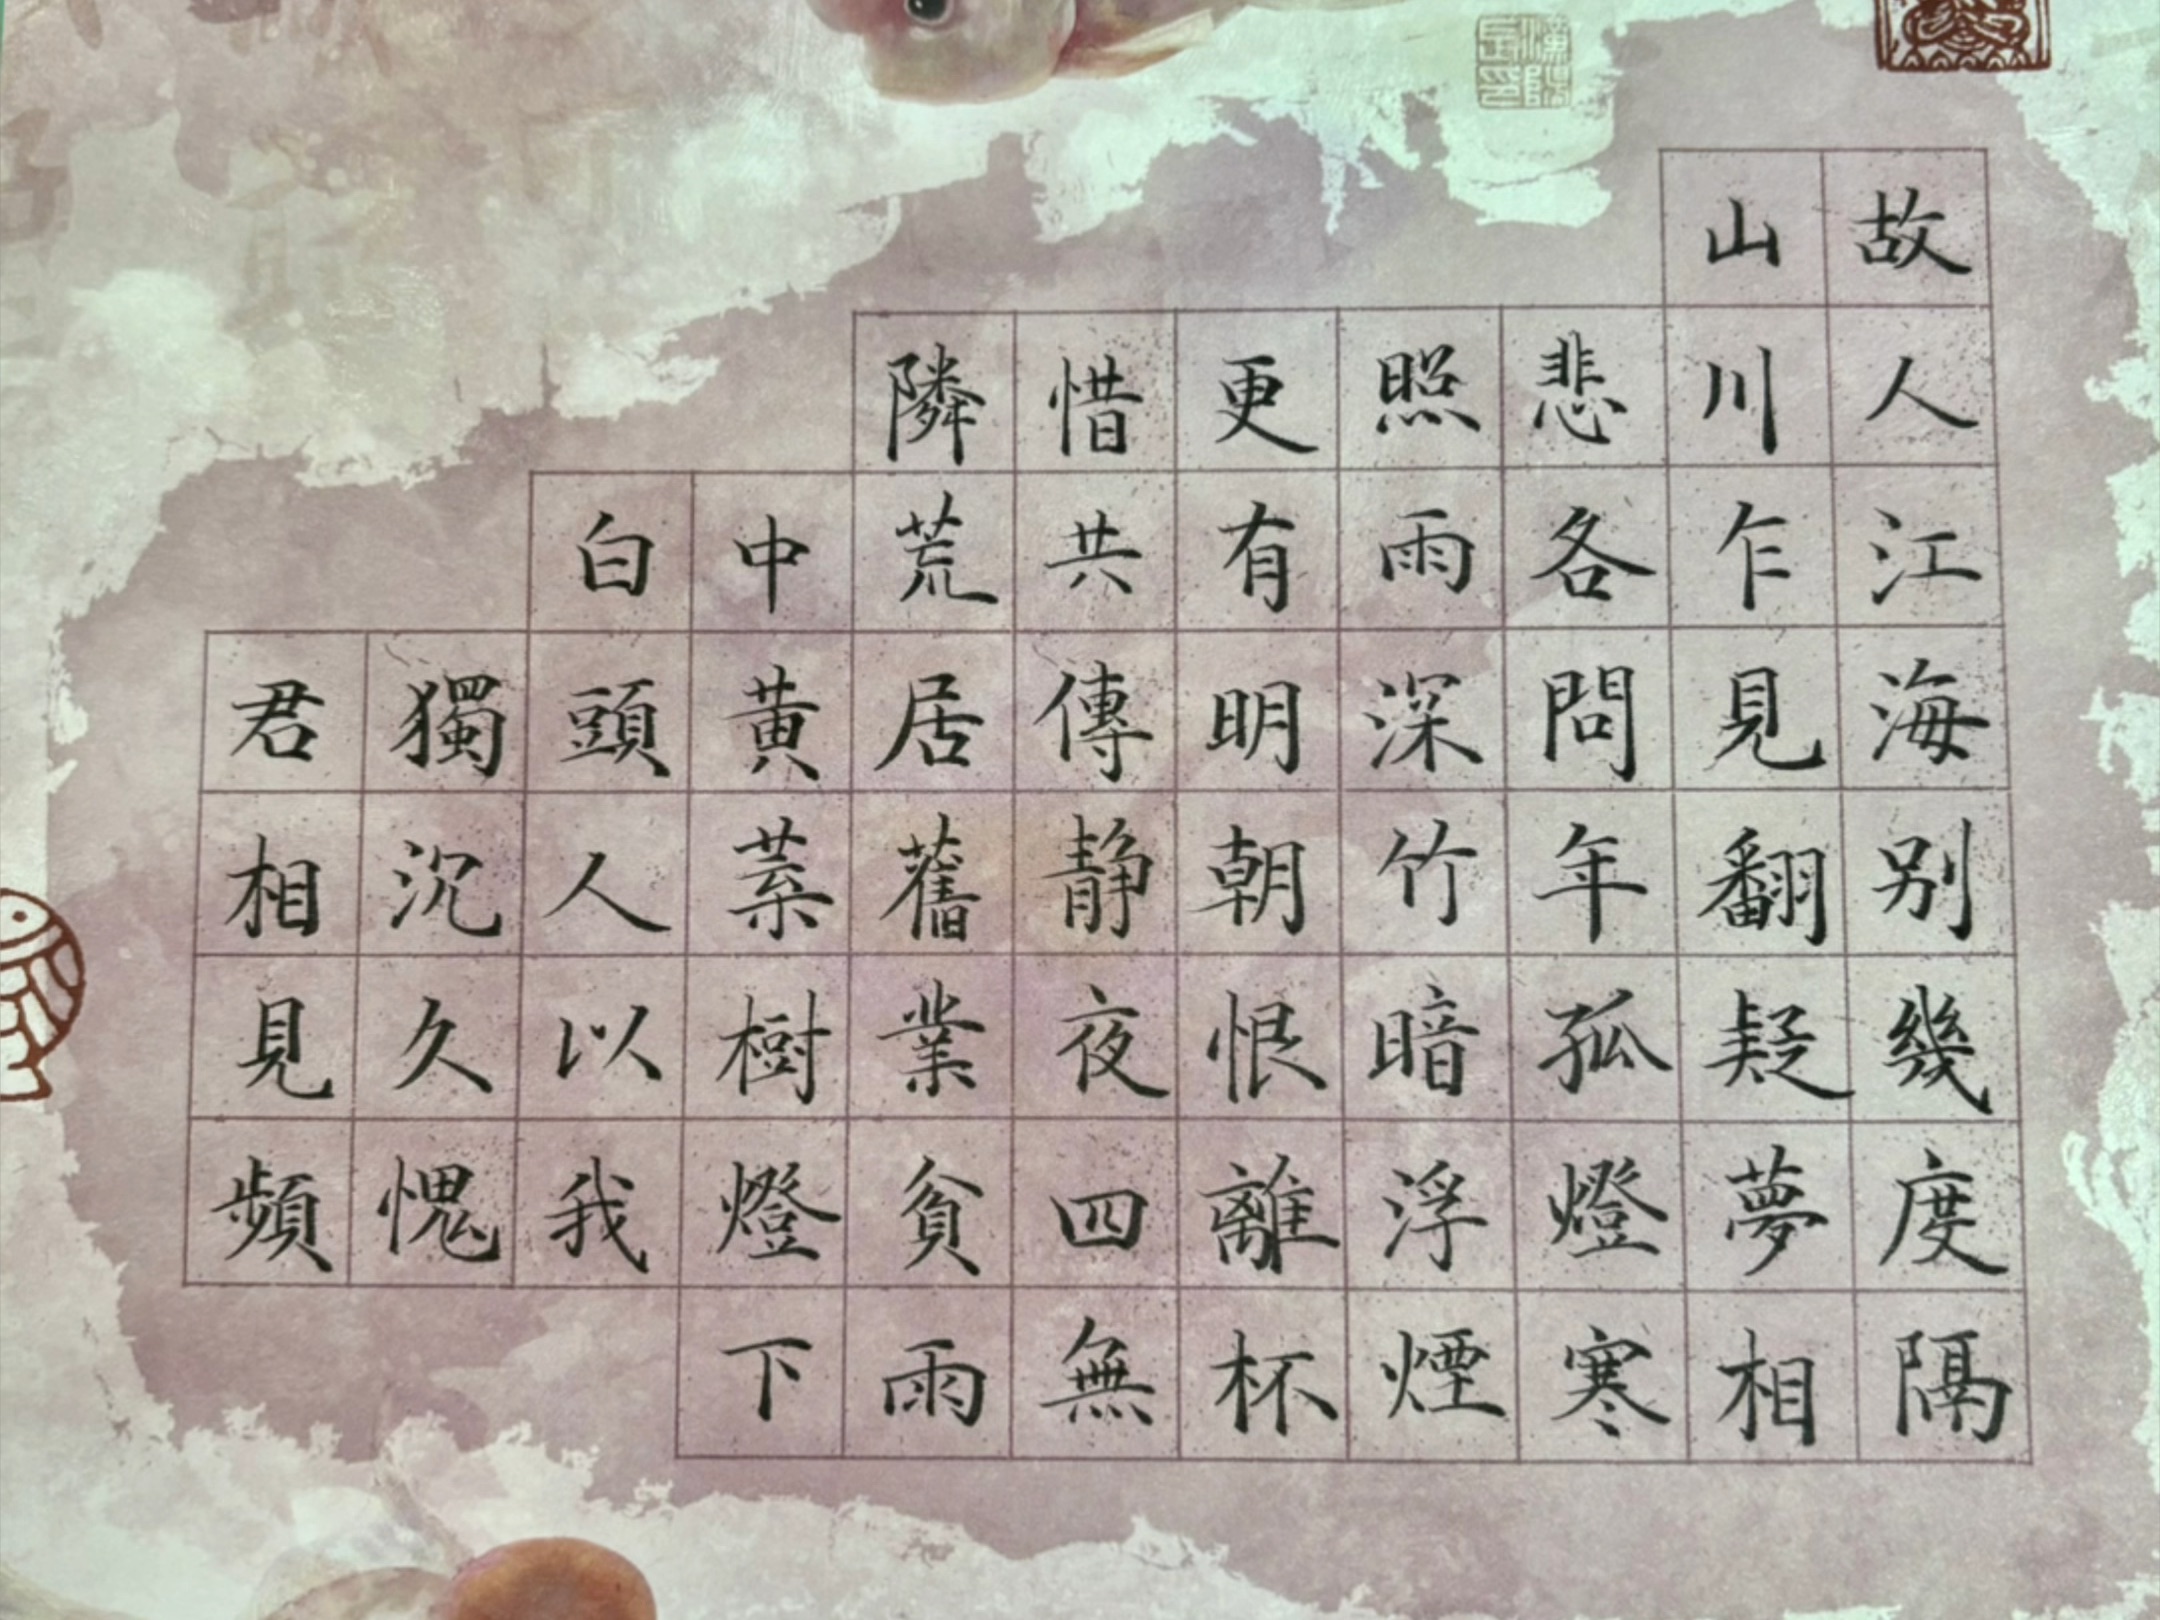 故人江海别幾度隔
山川乍見翻疑夢相
悲各問年孤燈寒
照雨深竹暗浮煙
更有明朝恨離杯
惜共傳静夜四無
隣荒居舊業貧雨
中黄葉樹燈下
白頭人以我
獨沉久愧
君相見頻